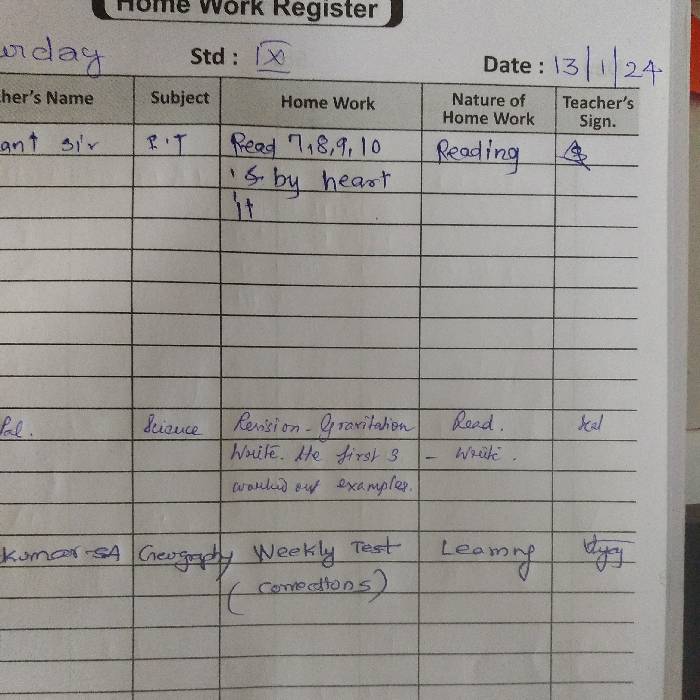 Home Work Register
urday Std : IX Date : 13/1/24
her's Name Subject Home Work Nature of Home Work Teacher's Sign.
ant sir I.T Read 7,8,9,10 Reading
's by heart
it
Pal. Science Revision - Gravitation Read.
Write. the first 3 - Write.
worked out examples.
kumar-SA Geography Weekly Test Learning
(corrections)